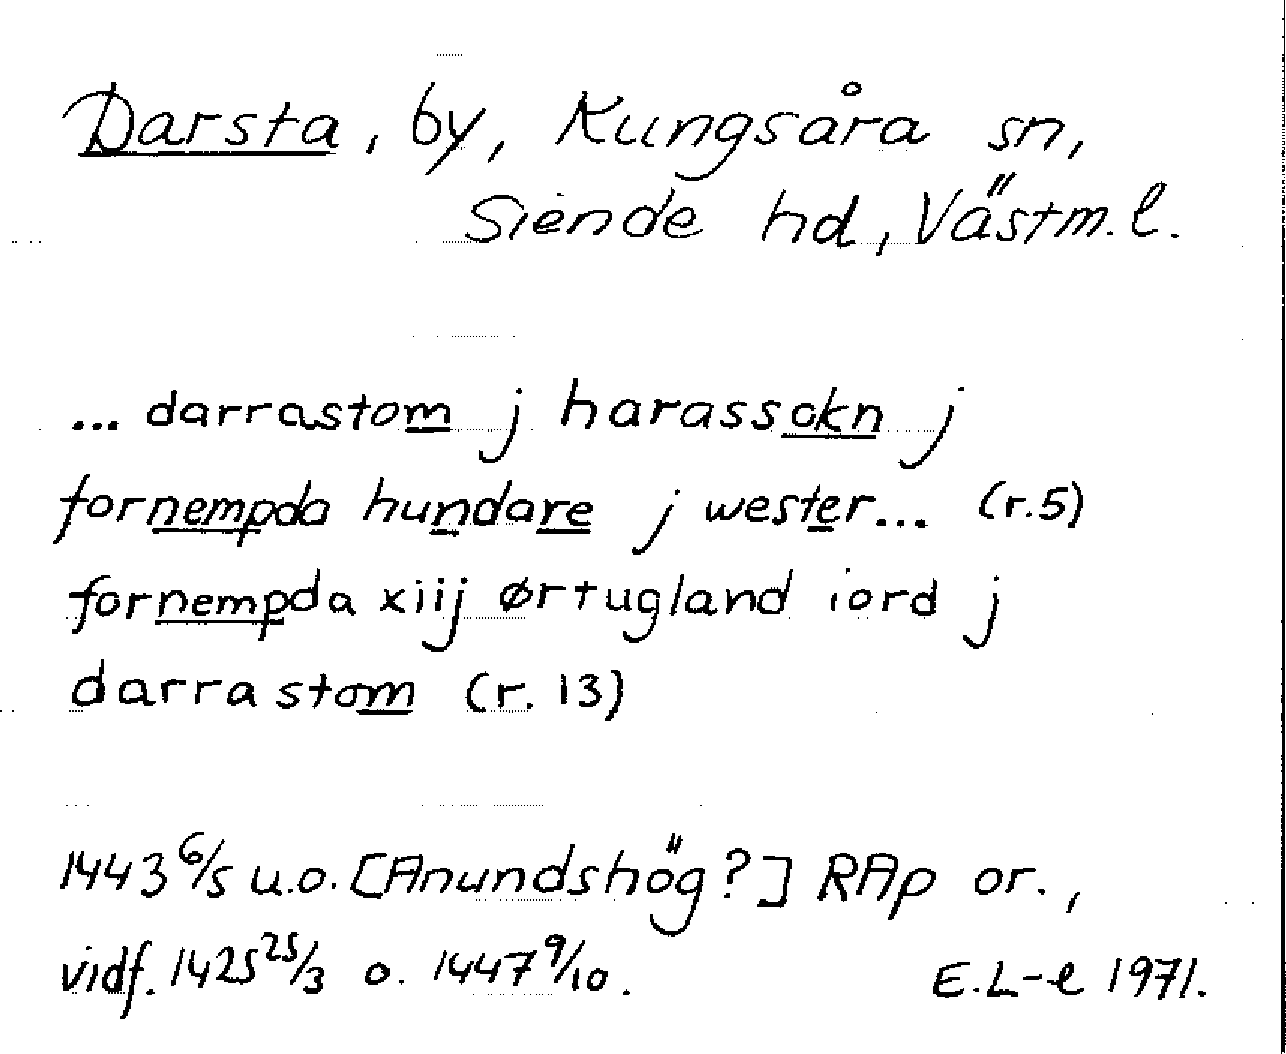 Darsta, by, Kungsåra sn,
Siende hd, Västm. l.
... darrastom j harassokn j
fornempda hundare j wester... (r.5)
fornempda xiij ørtugland iord j
darrastom (r. 13)
1443 6/5 u.o. [Anundshög?] RAp or.,
vidf. 1425 25/3 o. 1447 9/10.
E.L-e 1971.